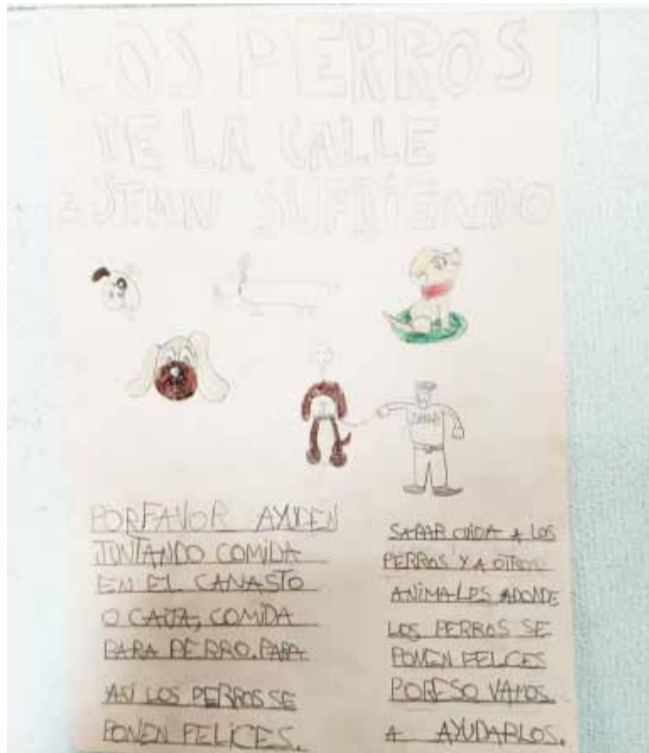 LOS PERROS
DE LA CALLE
ESTAN SUFRIENDO
POR FAVOR AYUDEN
JUNTANDO COMIDA
EN EL CANASTO
O CAJA, COMIDA
PARA PERRO. PARA
ASÍ LOS PERROS SE
PONEN FELICES.
SAPAR CUIDA A LOS
PERROS Y A OTROS
ANIMALES ADONDE
LOS PERROS SE
PONEN FELICES
POR ESO VAMOS
A AYUDARLOS.